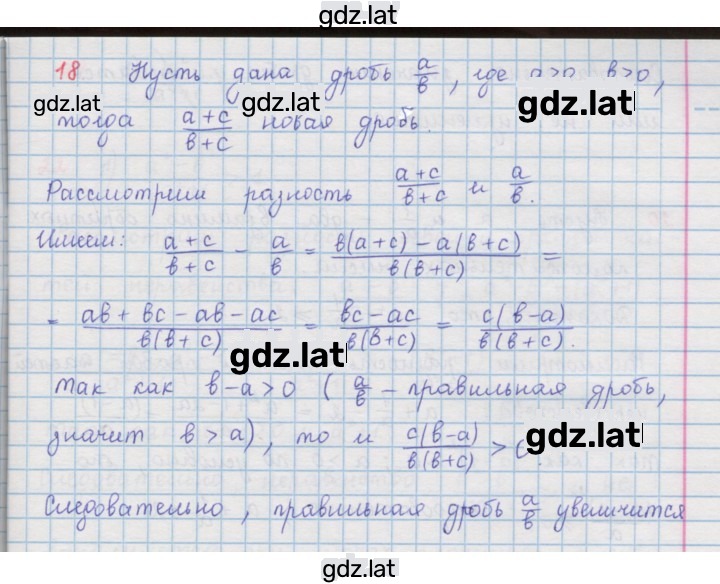 gdz.lat
18. Пусть дана дробь a/в, где a>0 в>0,
gdz.lat gdz.lat
тогда (a+c)/(в+c) новая дробь.
Рассмотрим разность (a+c)/(в+c) и a/в.
Имеем: (a+c)/(в+c) - a/в = (в(a+c) - a(в+c))/(в(в+c)) =
= (aв + вc - aв - ac)/(в(в+c)) = (вc - ac)/(в(в+c)) = (c(в-a))/(в(в+c)).
gdz.lat
Так как в-a>0 (a/в - правильная дробь,
значит в > a), то и (c(в-a))/(в(в+c)) >
gdz.lat
Следовательно, правильная дробь a/в увеличится
gdz.lat